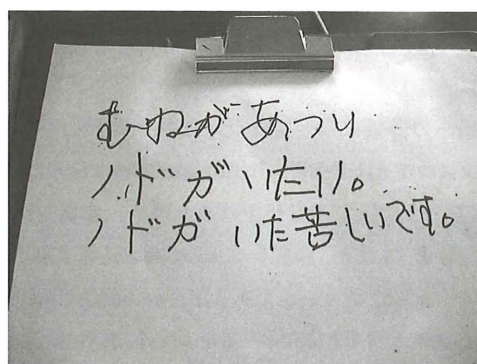 むねがあつい
ノドガいたい。
ノドガいた苦しいです。